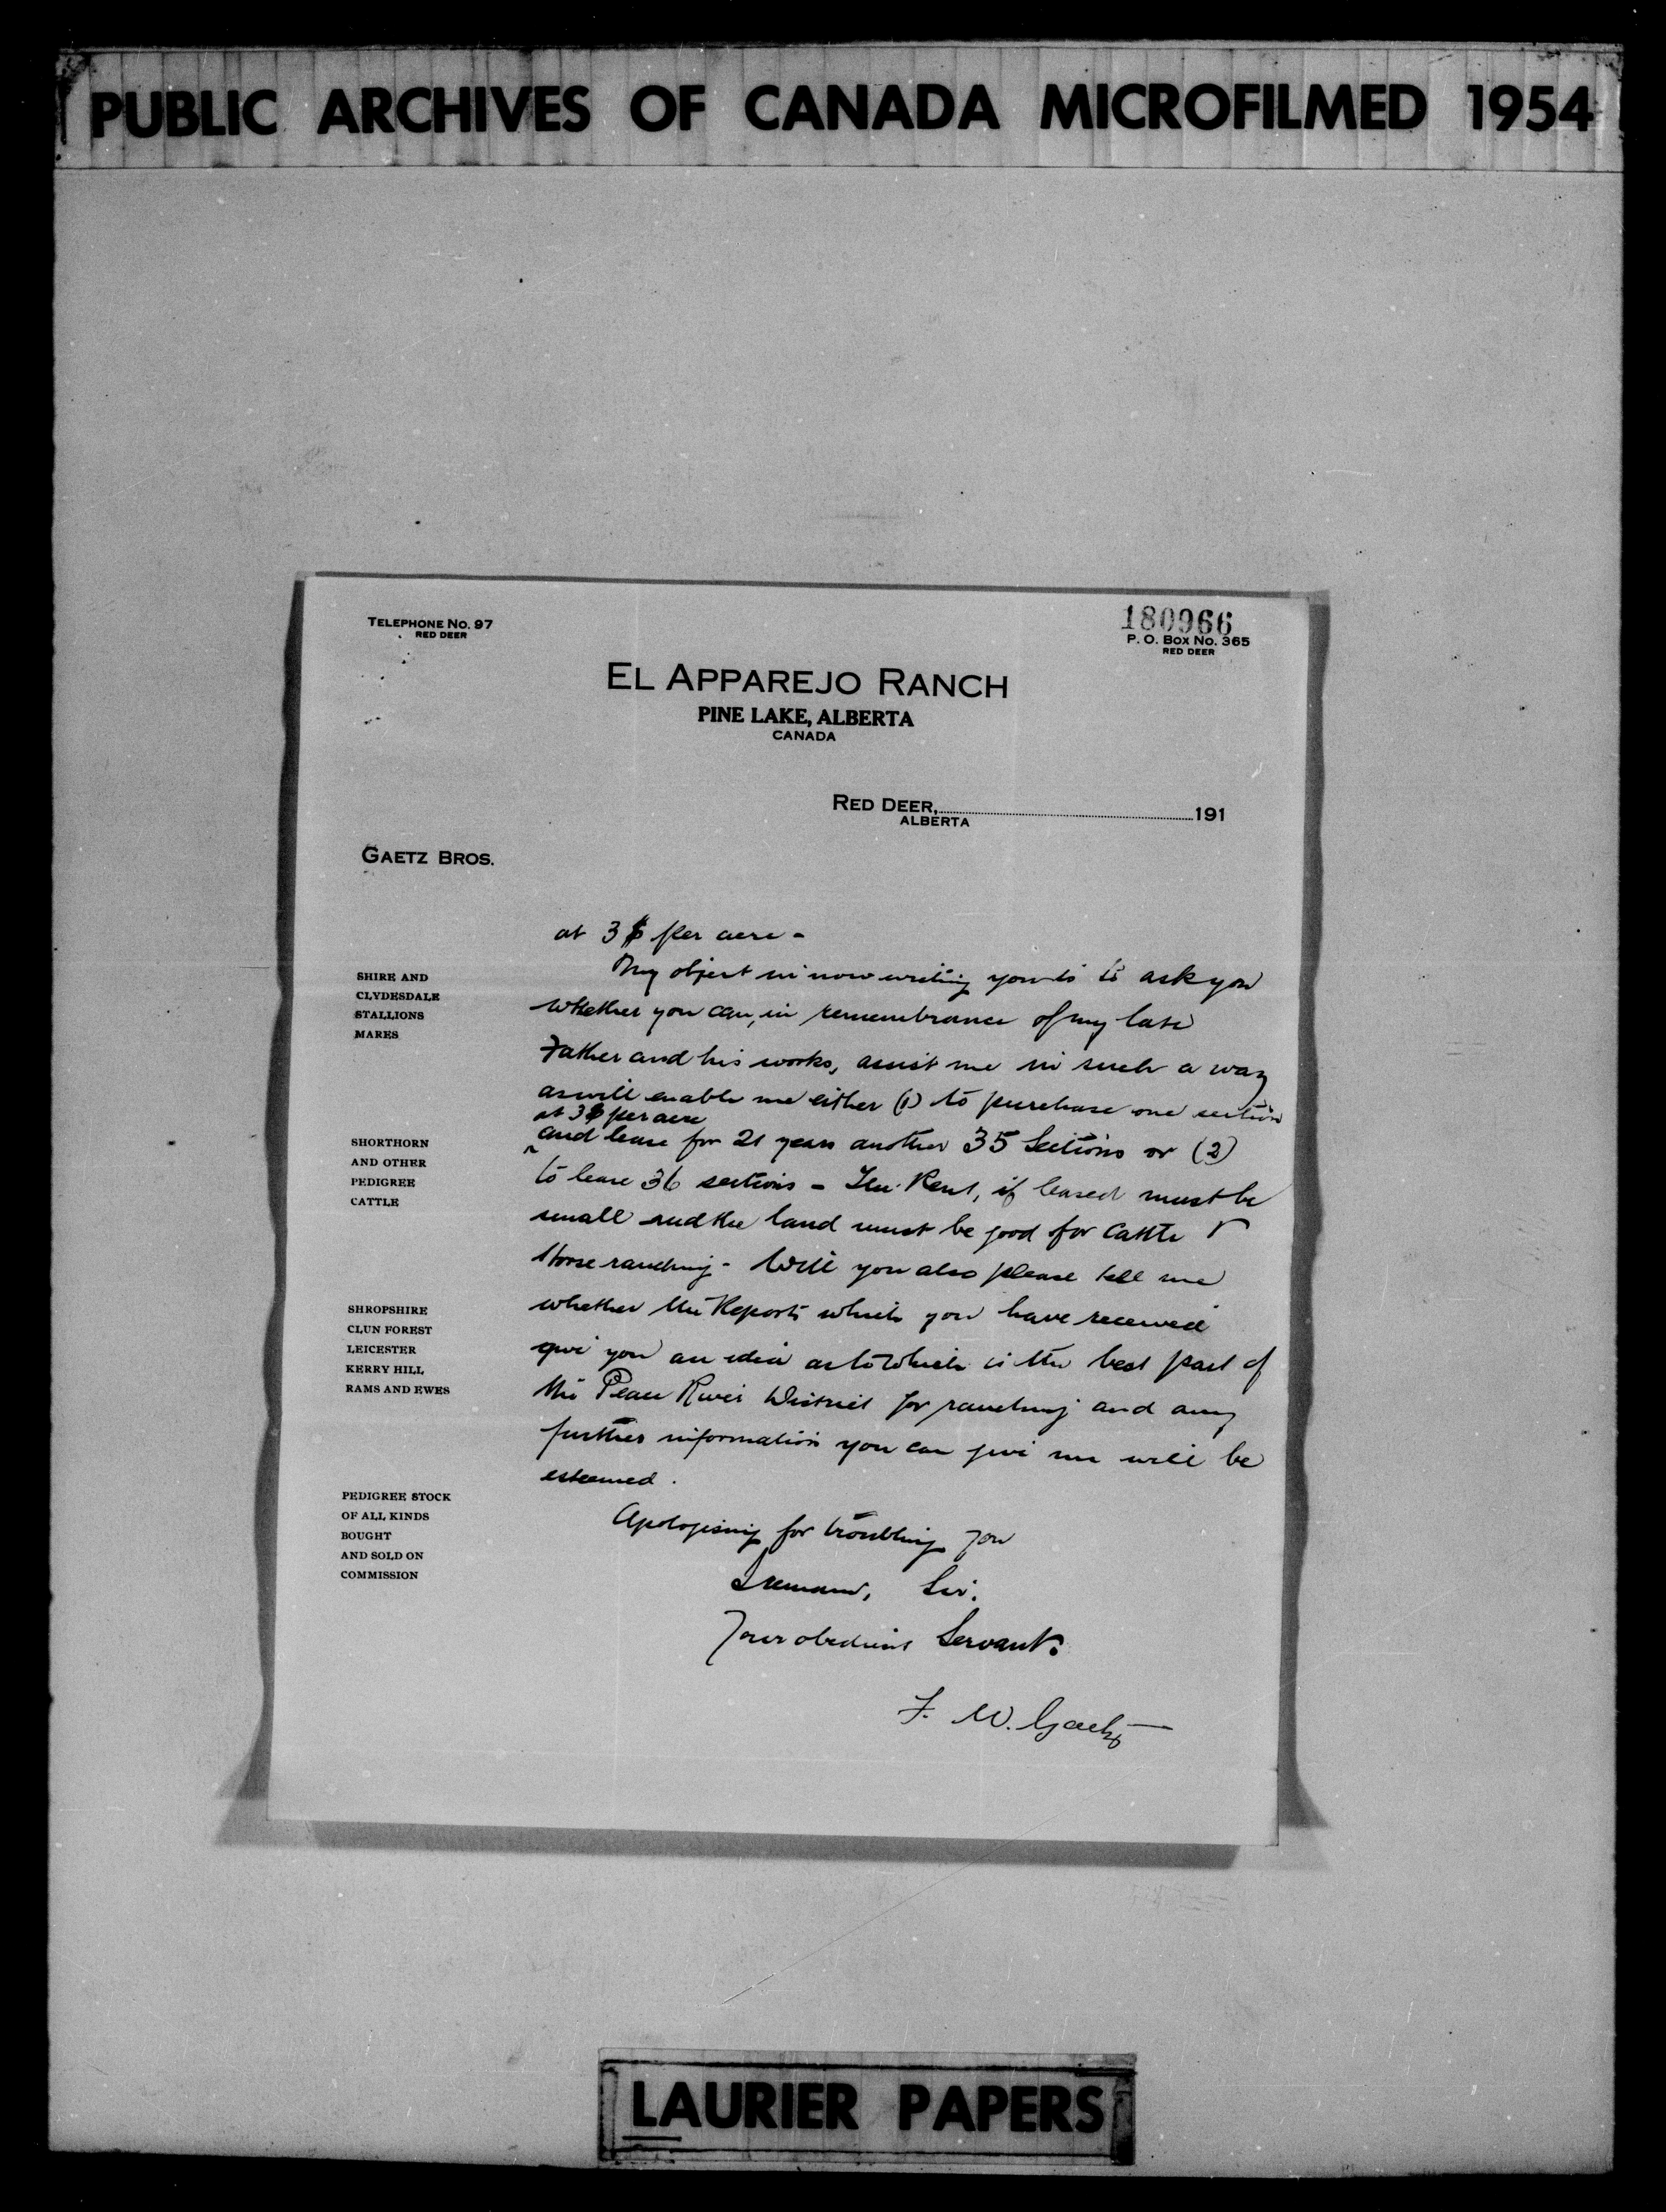 PUBLIC ARCHIVES OF CANADA MICROFILMED 1954
TELEPHONE No. 97
RED DEER
180966
P. O. Box No. 365
RED DEER
EL APPAREJO RANCH
PINE LAKE, ALBERTA
CANADA
RED DEER, 191
ALBERTA
GAETZ BROS.
at 3 $ per acre -
My object in now writing you is to ask you
whether you can, in remembrance of my late
Father and his works, assist me in such a way
as will enable me either (1) to purchase one section
at 3 $ per acre
and lease for 21 years another 35 Sections or (2)
to lease 36 sections - The Rent, if leased must be
small and the land must be good for Cattle &
Horse ranching - Will you also please tell me
whether the Reports which you have received
give you an idea as to which is the best part of
the Peace River District for ranching and any
further information you can give me will be
esteemed.
Apologising for troubling you
I remain, Sir.
Your obedient Servant.
F. W. Gaetz
SHIRE AND
CLYDESDALE
STALLIONS
MARES
SHORTHORN
AND OTHER
PEDIGREE
CATTLE
SHROPSHIRE
CLUN FOREST
LEICESTER
KERRY HILL
RAMS AND EWES
PEDIGREE STOCK
OF ALL KINDS
BOUGHT
AND SOLD ON
COMMISSION
LAURIER PAPERS